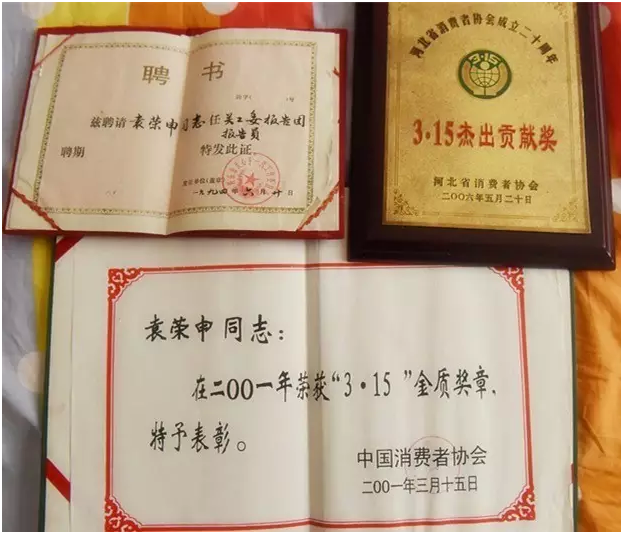 聘 书
兹聘请袁荣申同志任关工委报告团
报告员
聘期 特发此证。
一九九四年六月十日
河北省消费者协会成立二十周年
3·15
3·15杰出贡献奖
河北省消费者协会
二〇〇六年五月二十日
袁荣申同志：
在二〇〇一年荣获“3·15”金质奖章、
特予表彰。
中国消费者协会
二〇〇一年三月十五日